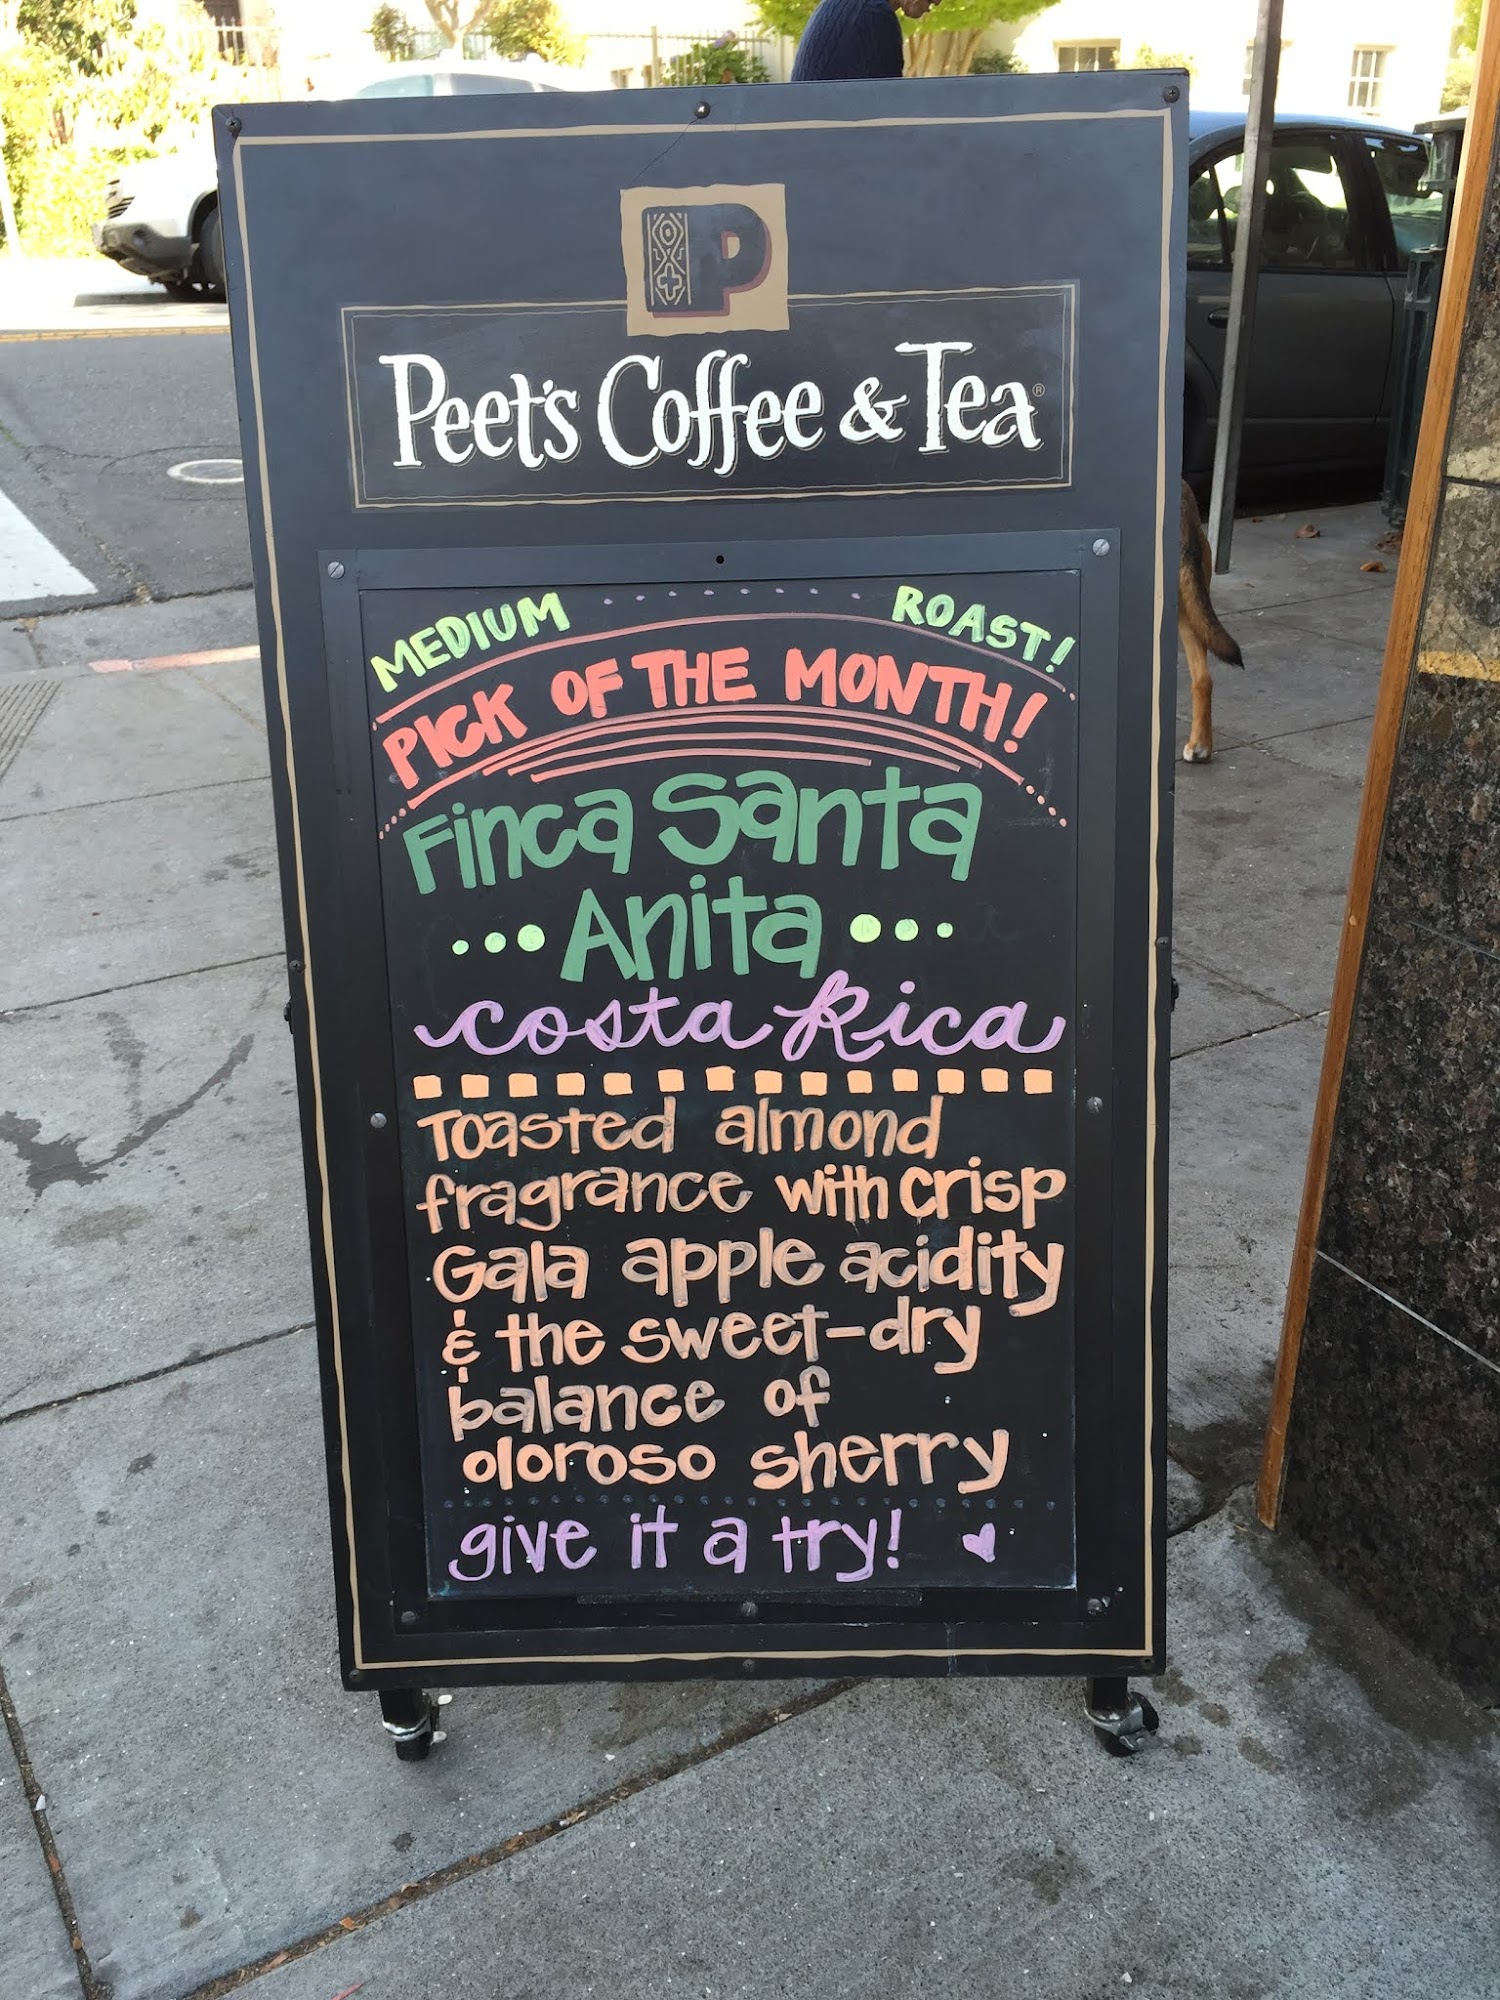 P
Peet's Coffee & Tea®
MEDIUM ROAST!
PICK OF THE MONTH!
Finca Santa
Anita
Costa Rica
Toasted almond
fragrance with crisp
Gala apple acidity
& the sweet-dry
balance of
oloroso sherry
give it a try!